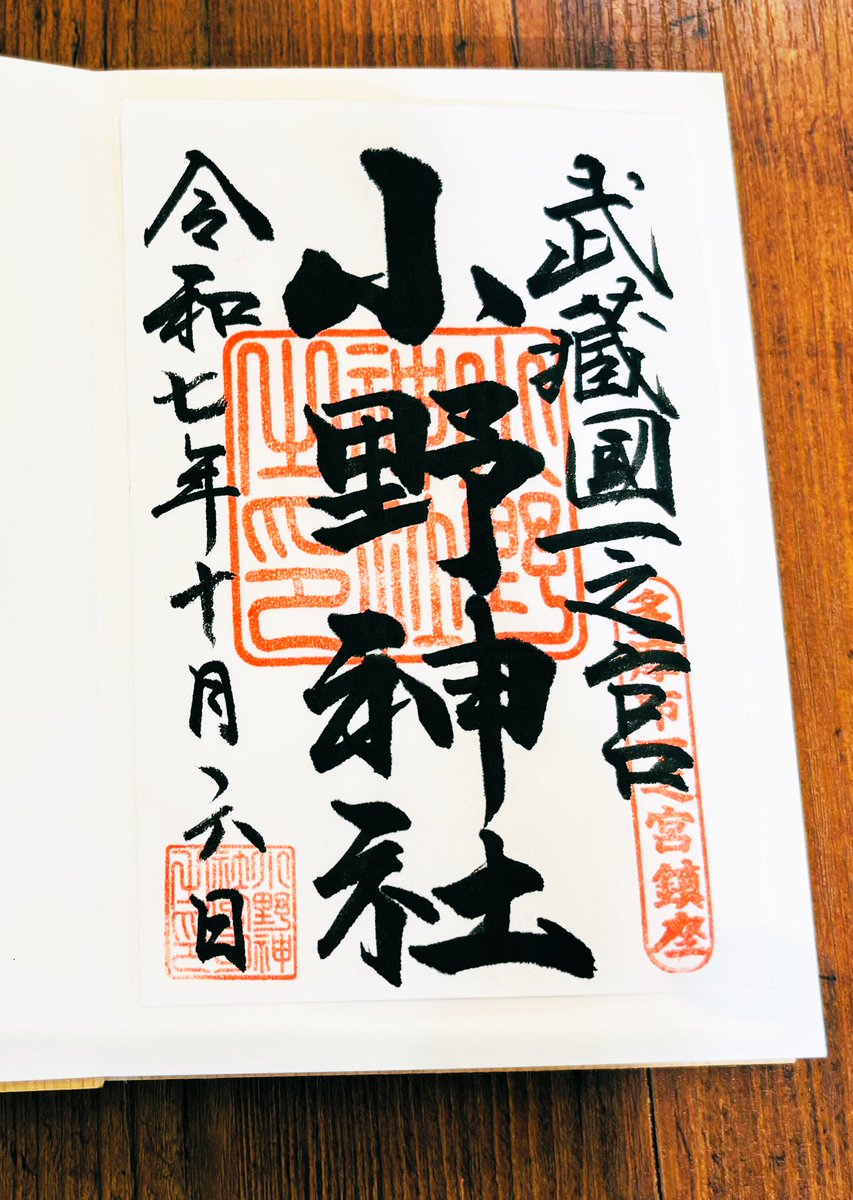 武蔵國一之宮
多摩市一之宮鎮座
小野神社
小野神社之印
令和七年十月六日
小野神社